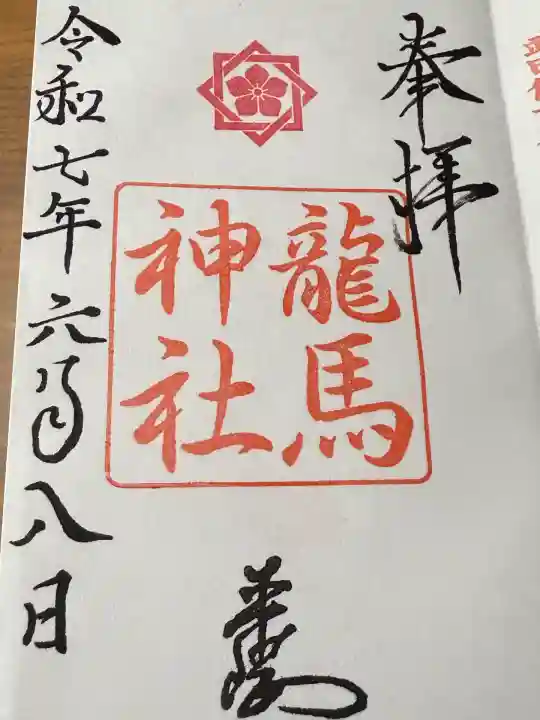 奉拝
龍馬
神社
令和七年六月八日